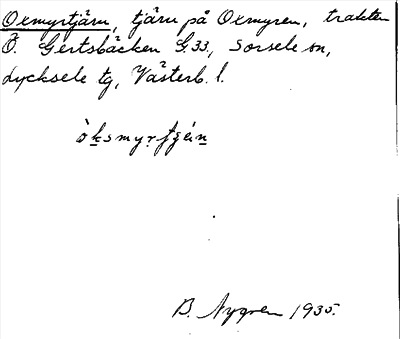 Oxmyrtjärn, tjärn på Oxmyren, trakten
Ö. Gertsbäcken G.33, Sorsele sn,
Lycksele tg, Västerb. l.
B. Nygren 1935.